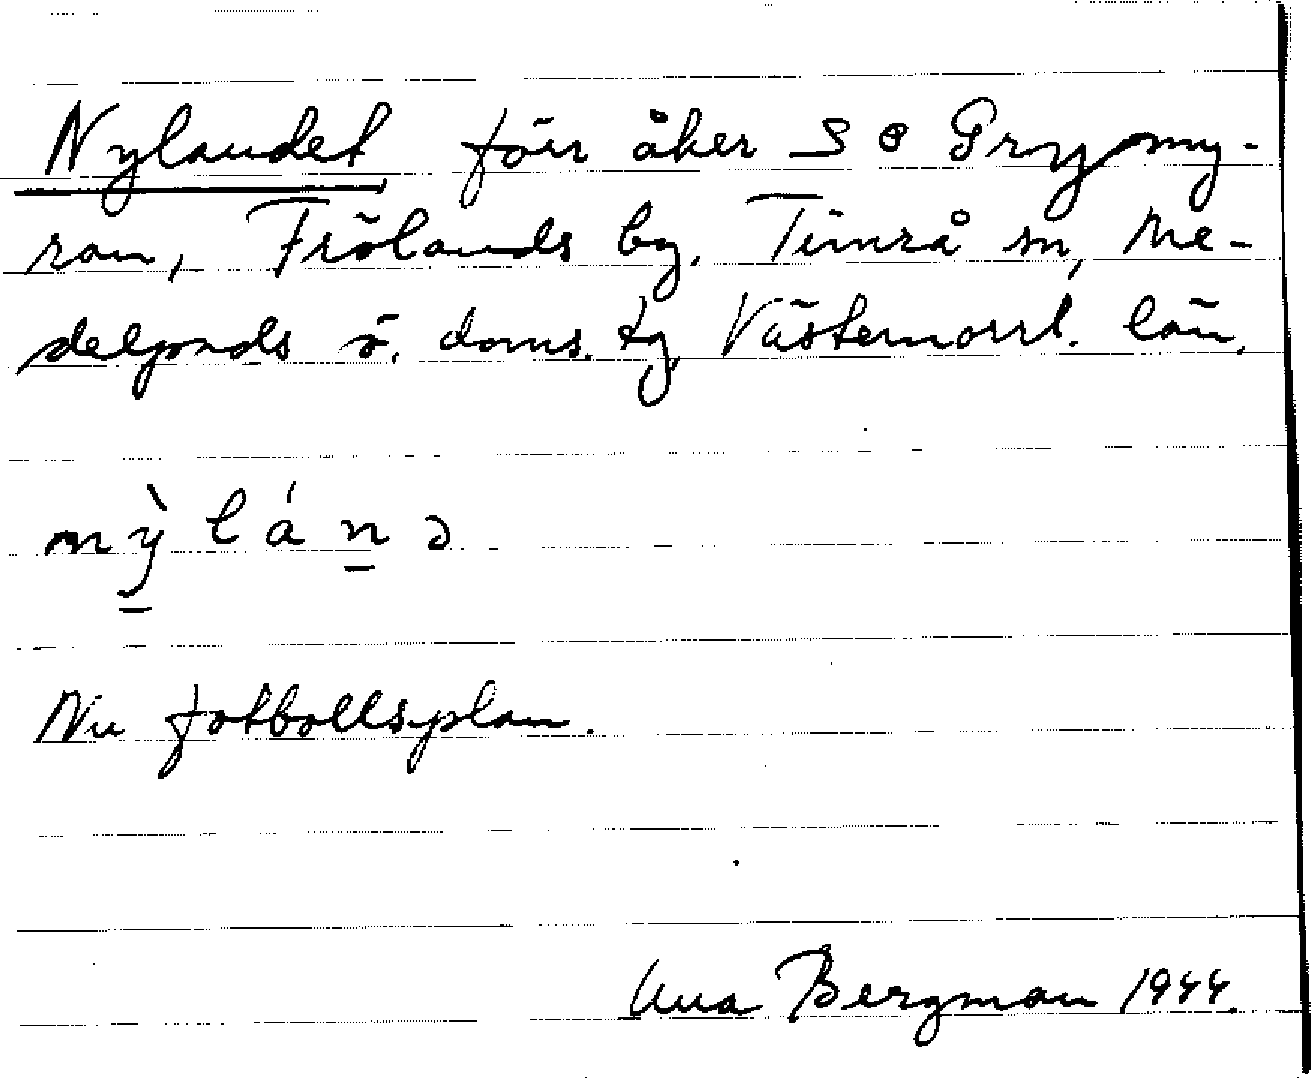 Nylandet förr åker S o Grymy-
ran, Frölands by, Timrå sn, Me-
delpads ö. doms. tg, Västernorrl. län.
nỳlánə
Nu fotbollsplan.
Bergman 1944.